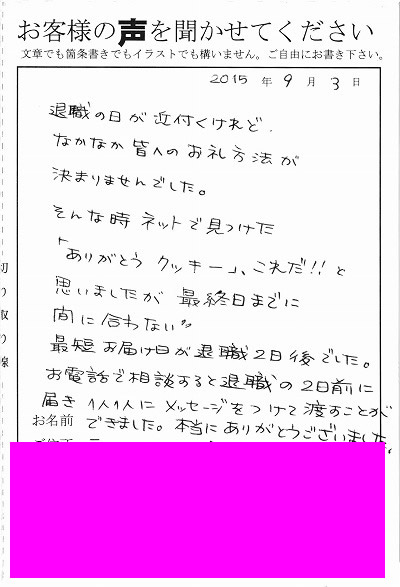 お客様の声を聞かせてください
文章でも箇条書きでもイラストでも構いません。ご自由にお書き下さい。
2015 年 9 月 3 日
退職の日が近付くけれど、
なかなか皆へのお礼方法が
決まりませんでした。
そんな時ネットで見つけた
「ありがとう クッキー」、これだ!! と
思いましたが 最終日までに
間に合わない〃
最短お届け日が退職2日後でした。
お電話で相談すると退職の2日前に
届き 1人1人に メッセージをつけて渡すことが
できました。本当にありがとうございました。
お名前
切り取り線